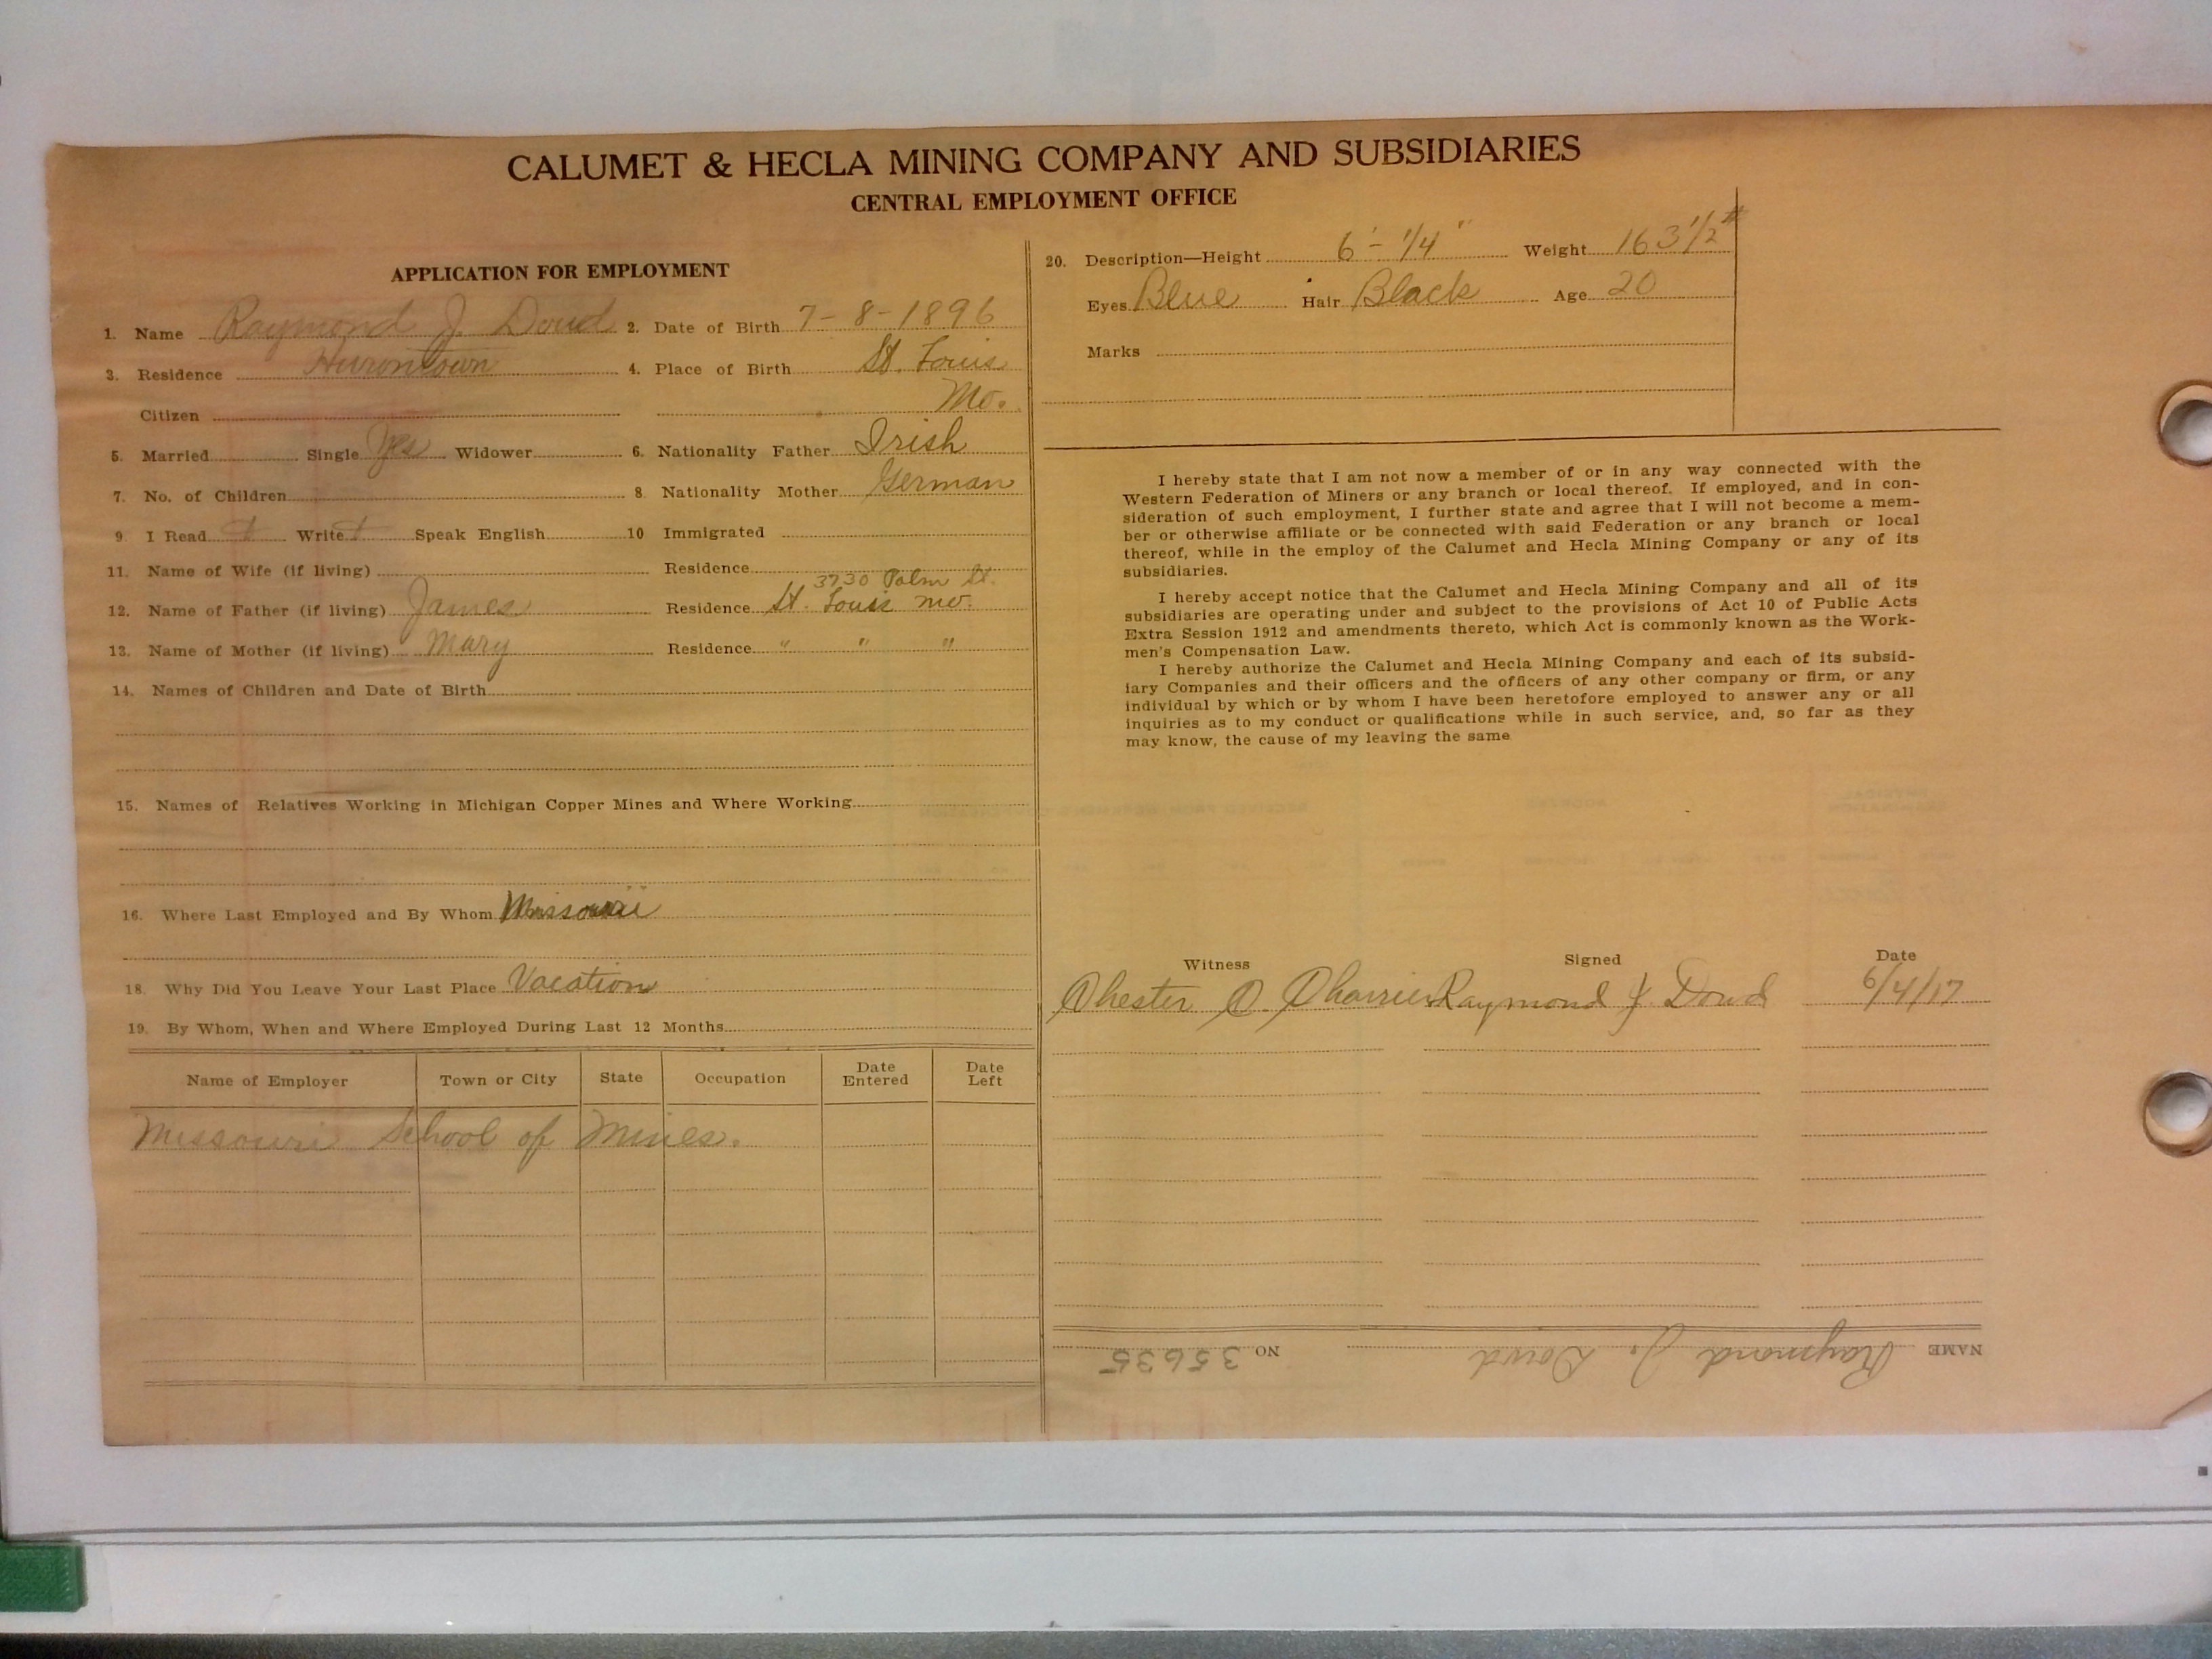 CALUMET & HECLA MINING COMPANY AND SUBSIDIARIES
CENTRAL EMPLOYMENT OFFICE
APPLICATION FOR EMPLOYMENT
1. Name Raymond J. Dowd 2. Date of Birth 7-8-1896
3. Residence Hurontown 4. Place of Birth St. Louis
Citizen Mo.
5. Married Single Yes Widower 6. Nationality Father Irish
7. No. of Children 8 Nationality Mother German
9 I Read Write Speak English 10 Immigrated
11. Name of Wife (if living) Residence
3730 Palm St.
12. Name of Father (if living) James Residence St. Louis Mo.
13. Name of Mother (if living) Mary Residence " " "
14. Names of Children and Date of Birth
15. Names of Relatives Working in Michigan Copper Mines and Where Working
16. Where Last Employed and By Whom Missouri
18. Why Did You Leave Your Last Place Vacation
19. By Whom, When and Where Employed During Last 12 Months
Name of Employer Town or City State Occupation Date Entered Date Left
Missouri School of Mines.
20. Description—Height 6'-1/4" Weight 163 1/2 #
Eyes Blue Hair Black Age 20
Marks
I hereby state that I am not now a member of or in any way connected with the
Western Federation of Miners or any branch or local thereof. If employed, and in con-
sideration of such employment, I further state and agree that I will not become a mem-
ber or otherwise affiliate or be connected with said Federation or any branch or local
thereof, while in the employ of the Calumet and Hecla Mining Company or any of its
subsidiaries.
I hereby accept notice that the Calumet and Hecla Mining Company and all of its
subsidiaries are operating under and subject to the provisions of Act 10 of Public Acts
Extra Session 1912 and amendments thereto, which Act is commonly known as the Work-
men's Compensation Law.
I hereby authorize the Calumet and Hecla Mining Company and each of its subsid-
iary Companies and their officers and the officers of any other company or firm, or any
individual by which or by whom I have been heretofore employed to answer any or all
inquiries as to my conduct or qualifications while in such service, and, so far as they
may know, the cause of my leaving the same
Witness Signed Date
Chester Raymond J. Dowd 6/4/17
NAME Raymond J. Dowd NO 35635